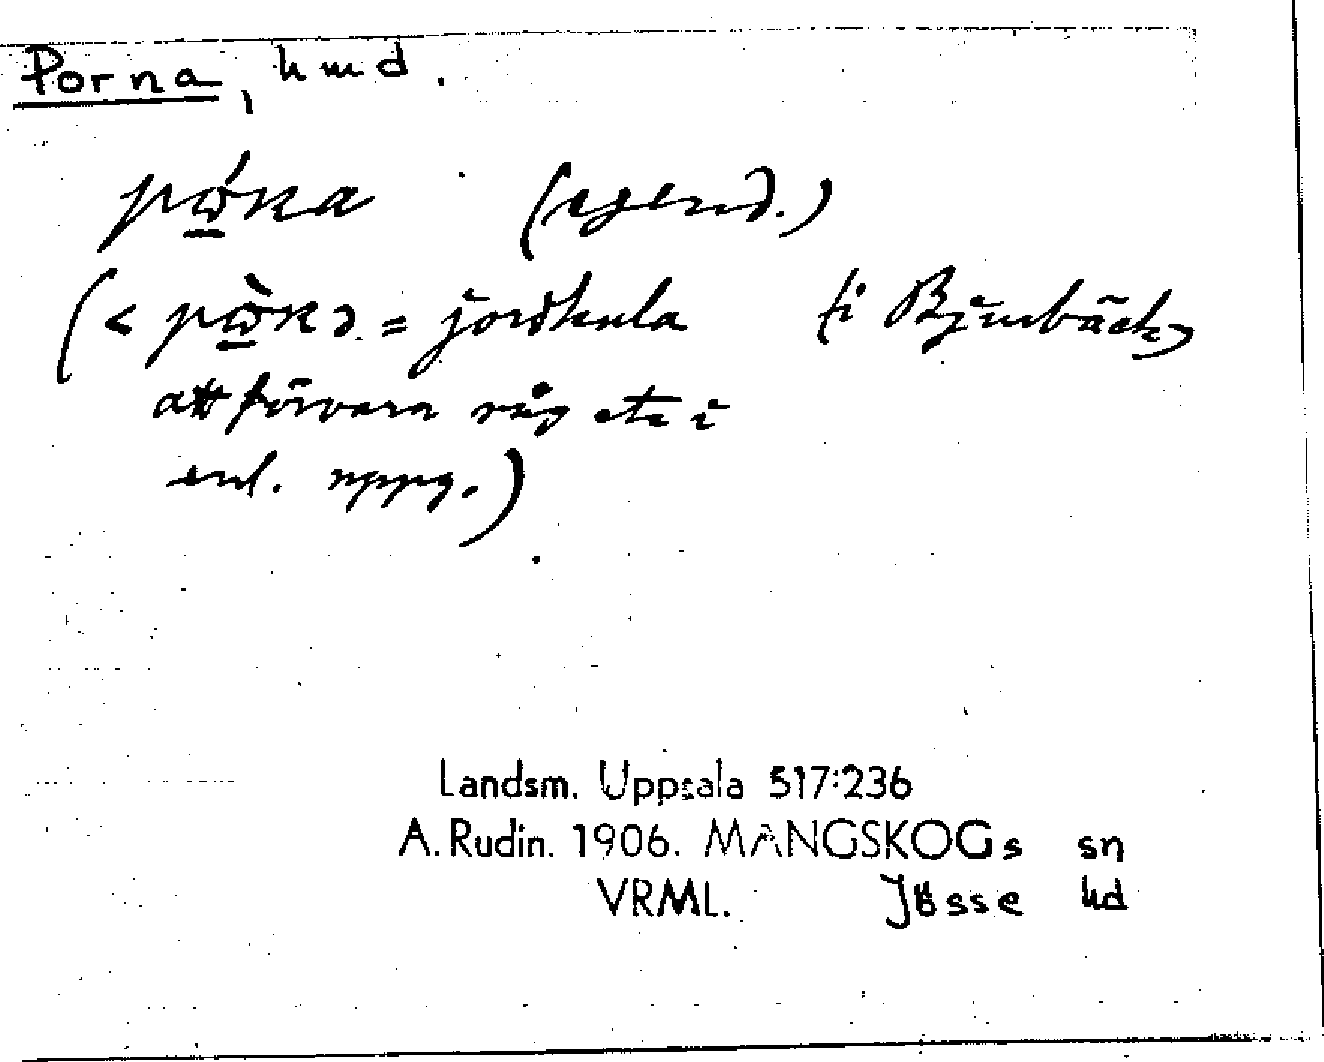 Porna, hmd.
(egend.)
= jordkula (i Bjurbäck,
att förvara råg etc i
enl. uppg.)
Landsm. Uppsala 517:236
A. Rudin. 1906. MANGSKOGs sn
VRML. Jösse hd